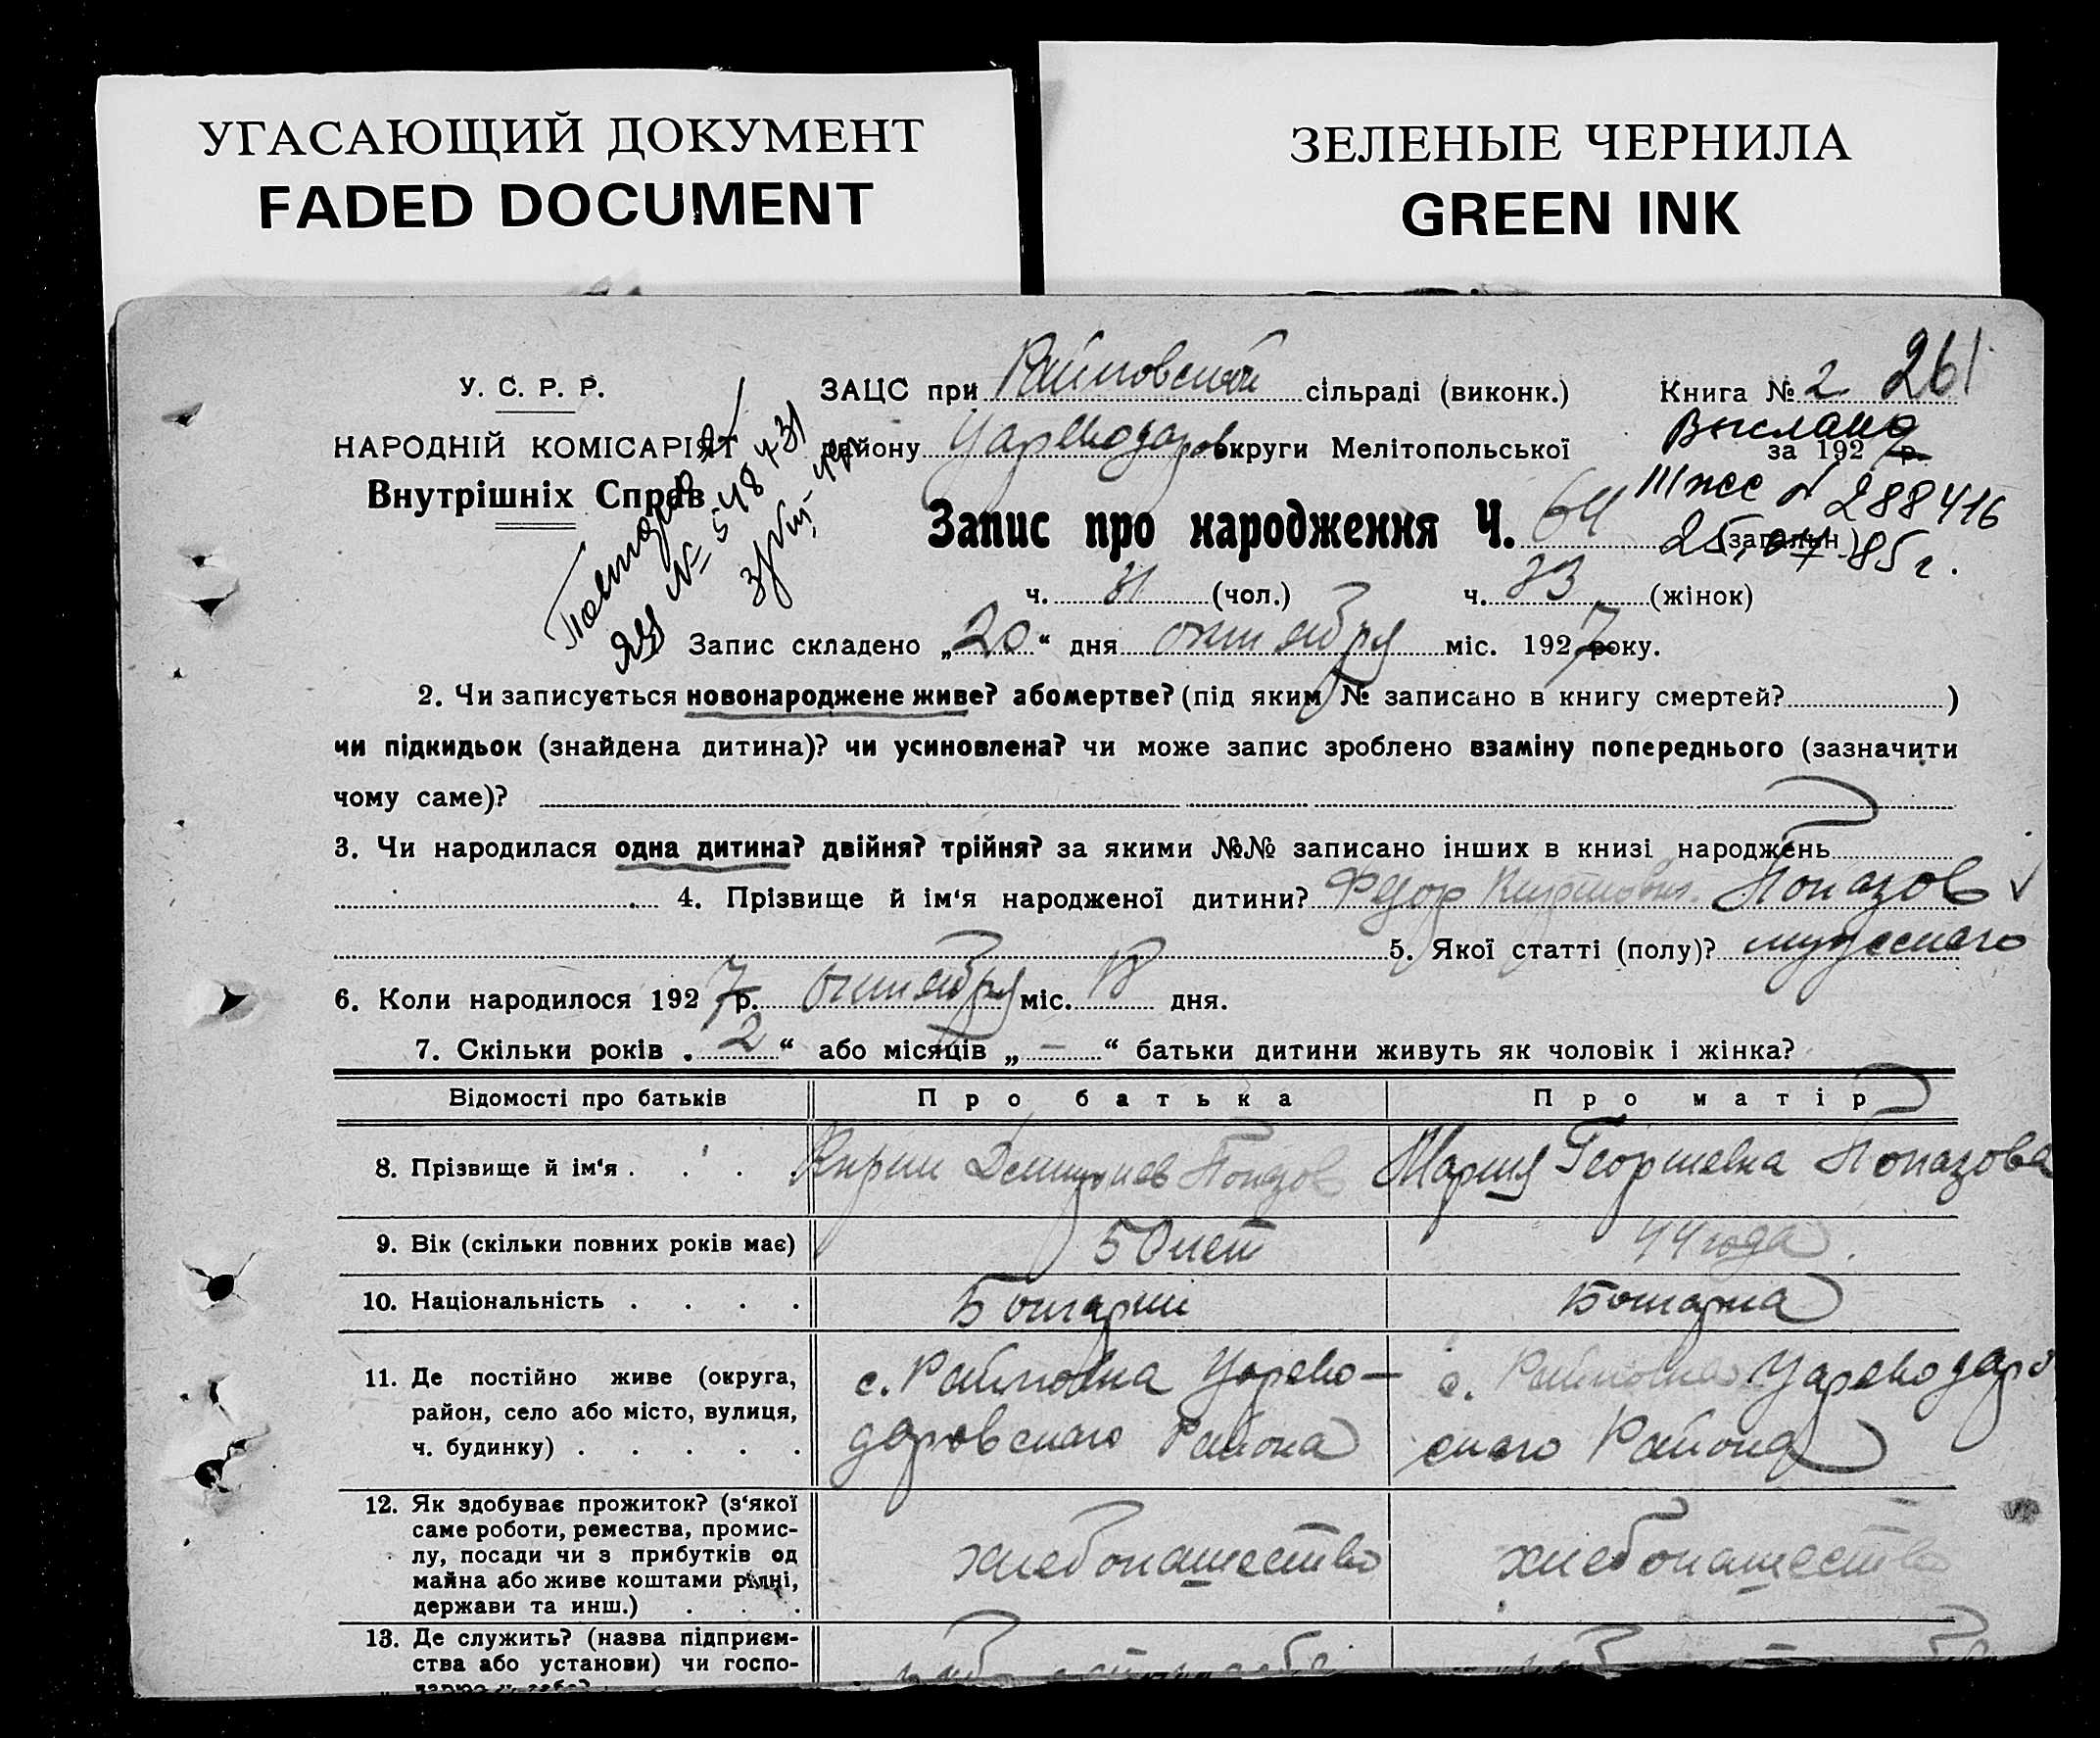 УГАСАЮЩИЙ ДОКУМЕНТ
FADED DOCUMENT
ЗЕЛЕНЫЕ ЧЕРНИЛА
GREEN INK
У. С. Р. Р.
НАРОДНІЙ КОМІСАРІЯТ
Внутрішніх Справ
Повторное
№ 548431
ЗАЦС при Райновской сільраді (виконк.) Книга № 2 261
району Цареводаров округи Мелітопольської за 1927 р.
Выслано
288416
25.04.85 г.
Запис про народження Ч. 64 (загальн.)
ч. 31 (чол.) ч. 33 (жінок)
Запис складено „20“ дня октября міс. 1927 року.
2. Чи записується новонароджене живе? або мертве? (під яким № записано в книгу смертей? )
чи підкидьок (знайдена дитина)? чи усиновлена? чи може запис зроблено взаміну попереднього (зазначити
чому саме)?
3. Чи народилася одна дитина? двійня? трійня? за якими №№ записано інших в книзі народжень
4. Прізвище й ім'я народженої дитини? Федор Попазов
5. Якої статті (полу)? мужескаго
6. Коли народилося 1927 р. октября міс. 18 дня.
7. Скільки років „2“ або місяців „–“ батьки дитини живуть як чоловік і жінка?
Відомості про батьків Про батька Про матір
8. Прізвище й ім'я . . . . Кирил Попазов Мария Георгиевна Попазова
9. Вік (скільки повних років має) 50 лет 44 года.
10. Національність . . . . Болгарин Болгарка
11. Де постійно живе (округа, с. Райновка Царево– с. Райновка Цареводаро
район, село або місто, вулиця,
ч. будинку) . . . . . даровскаго Района скаго Района
12. Як здобуває прожиток? (з'якої
саме роботи, ремества, промис-
лу, посади чи з прибутків од хлебопашество хлебопашество
майна або живе коштами рідні,
держави та инш.) . . .
13. Де служить? (назва підприєм-
ства або установи) чи госпо-